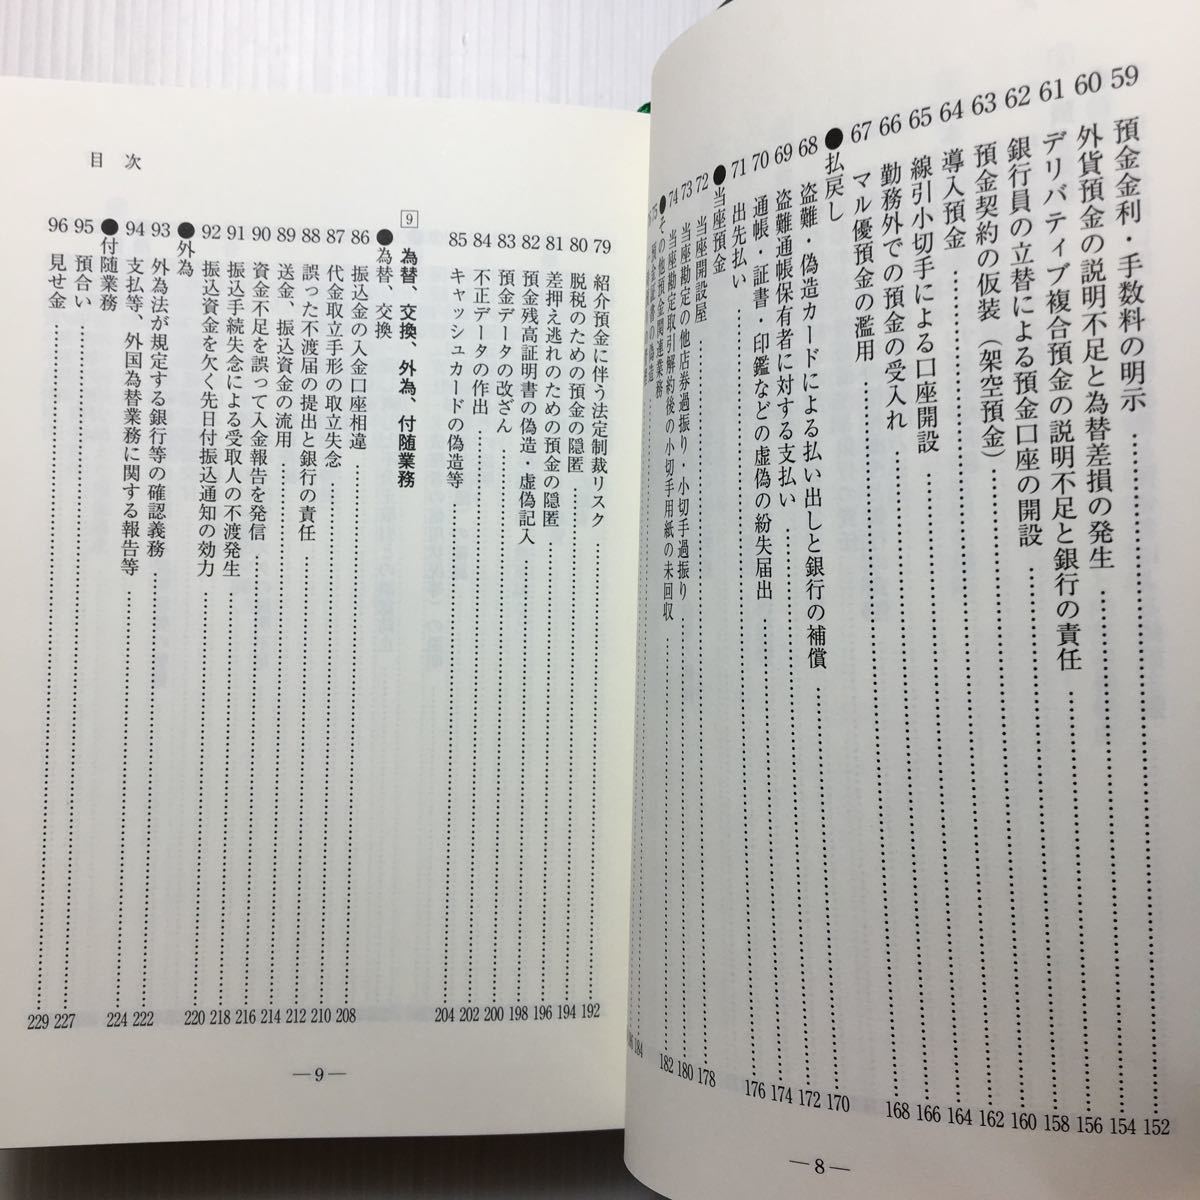 59 預金金利・手数料の明示 152
60 外貨預金の説明不足と為替差損の発生 154
61 デリバティブ複合預金の説明不足と銀行の責任 156
62 銀行員の立替による預金口座の開設 158
63 預金契約の仮装（架空預金） 160
64 導入預金 162
65 線引小切手による口座開設 164
66 勤務外での預金の受入れ 166
67 マル優預金の濫用 168
●払戻し
68 盗難・偽造カードによる払い出しと銀行の補償 170
69 盗難通帳保有者に対する支払い 172
70 通帳・証書・印鑑などの虚偽の紛失届出 174
71 出先払い 176
●当座預金
72 当座開設屋 178
73 当座勘定の他店券過振り・小切手過振り 180
74 当座勘定取引解約後の小切手用紙の未回収 182
●その他預金関連業務
75 預金証書の偽造 184
—8—
目 次
79 紹介預金に伴う法定制裁リスク 192
80 脱税のための預金の隠匿 194
81 差押え逃れのための預金の隠匿 196
82 預金残高証明書の偽造・虚偽記入 198
83 預金データの改ざん 200
84 不正データの作出 202
85 キャッシュカードの偽造等 204
9 為替、交換、外為、付随業務
●為替、交換
86 振込金の入金口座相違 208
87 代金取立手形の取立失念 210
88 誤った不渡届の提出と銀行の責任 212
89 送金、振込資金の流用 214
90 資金不足を誤って入金報告を発信 216
91 振込手続失念による受取人の不渡発生 218
92 振込資金を欠く先日付振込通知の効力 220
●外為
93 外為法が規定する銀行等の確認義務 222
94 支払等、外国為替業務に関する報告等 224
●付随業務
95 預合い 227
96 見せ金 229
—9—